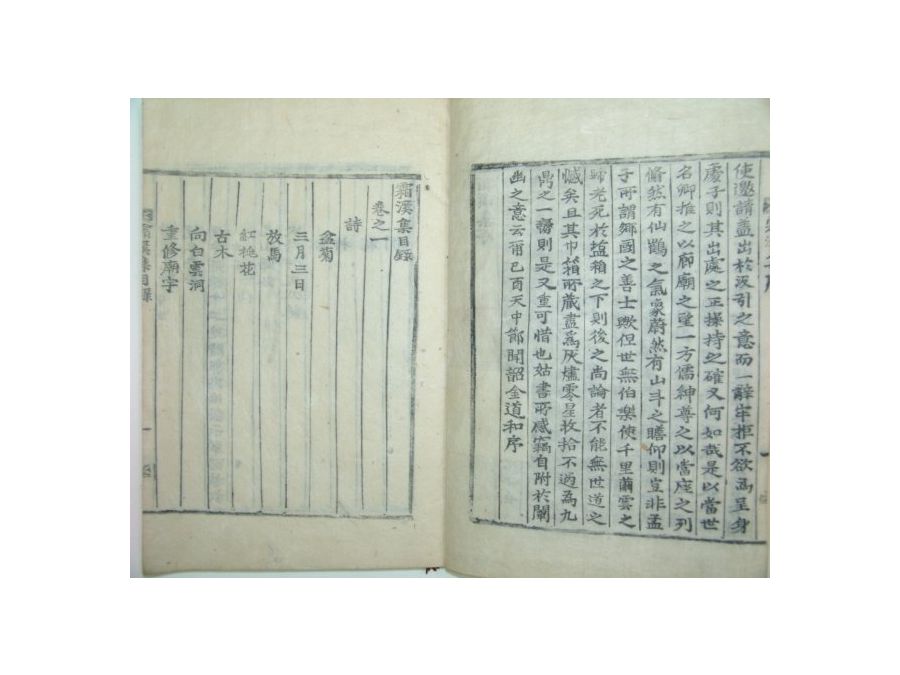 使邀請盖出於汲引之意而一辭牢拒不欲爲呈身
慶子則其出處之正操持之確又何如哉是以當世
名卿推之以廊廟之望一方儒紳尊之以當座之列
脩然有仙鶴之氣象蔚然有山斗之瞻仰則豈非孟
子所謂鄉國之善士歟但世無伯樂使千里繭雲之
蹄老死於鹽箱之下則後之尚論者不能無世道之
憾矣且其巾箱所藏盡爲灰燼零星收拾不過爲九
鼎之一臠則是又重可惜也姑書所感竊自附於闡
幽之意云爾己酉天中節聞韶金道和序
霜溪集目錄
卷之一
詩
盆菊
三月三日
放馬
紅桃花
古木
向白雲洞
重修廟宇
霜溪集目錄
一